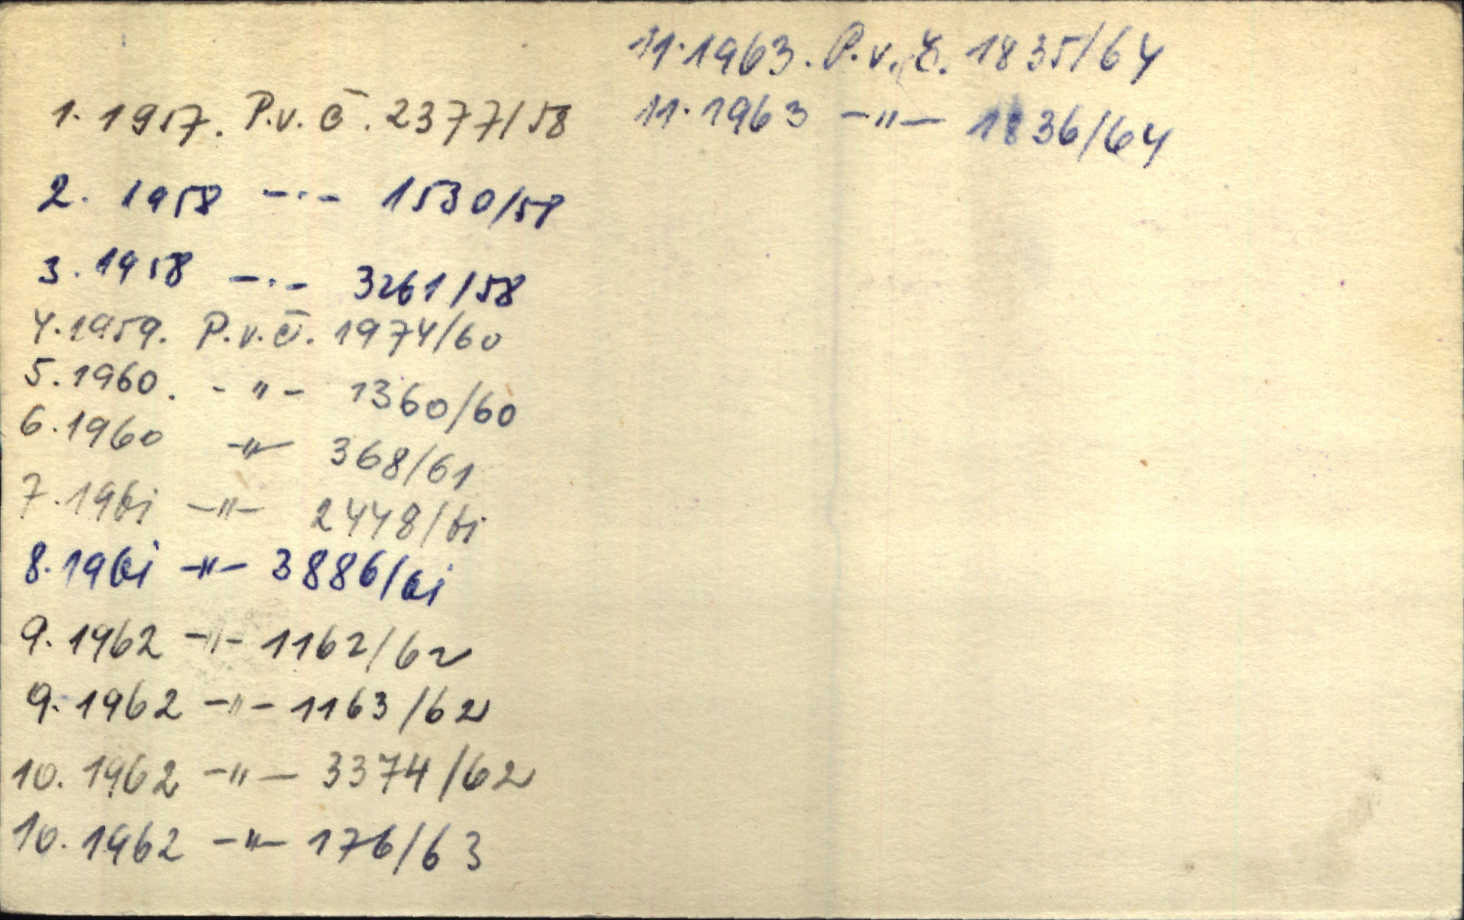 1. 1957. P.v.č. 2377/58
2. 1958 -〃- 1530/58
3. 1958 -〃- 3261/58
4. 1959. P.v.č. 1974/60
5. 1960. -〃- 1360/60
6. 1960 -〃- 368/61
7. 1961 -〃- 2448/61
8. 1961 -〃- 3886/61
9. 1962 -〃- 1162/62
9. 1962 -〃- 1163/62
10. 1962 -〃- 3374/62
10. 1962 -〃- 176/63
11. 1963. P.v.č. 1835/64
11. 1963 -〃- 1836/64